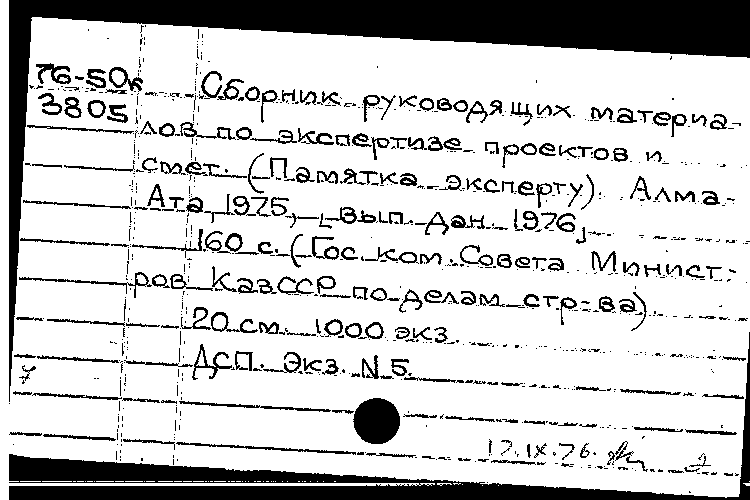 76-50к
3805
Сборник руководящих материа-
лов по экспертизе проектов и
смет. (Памятка эксперту). Алма-
Ата, 1975, [вып. дан. 1976]
160 с. (Гос. ком. Совета Минист-
ров КазССР по делам стр-ва).
20 см. 1000 экз.
ДСП. Экз. N 5.
7
.IX.76.
2